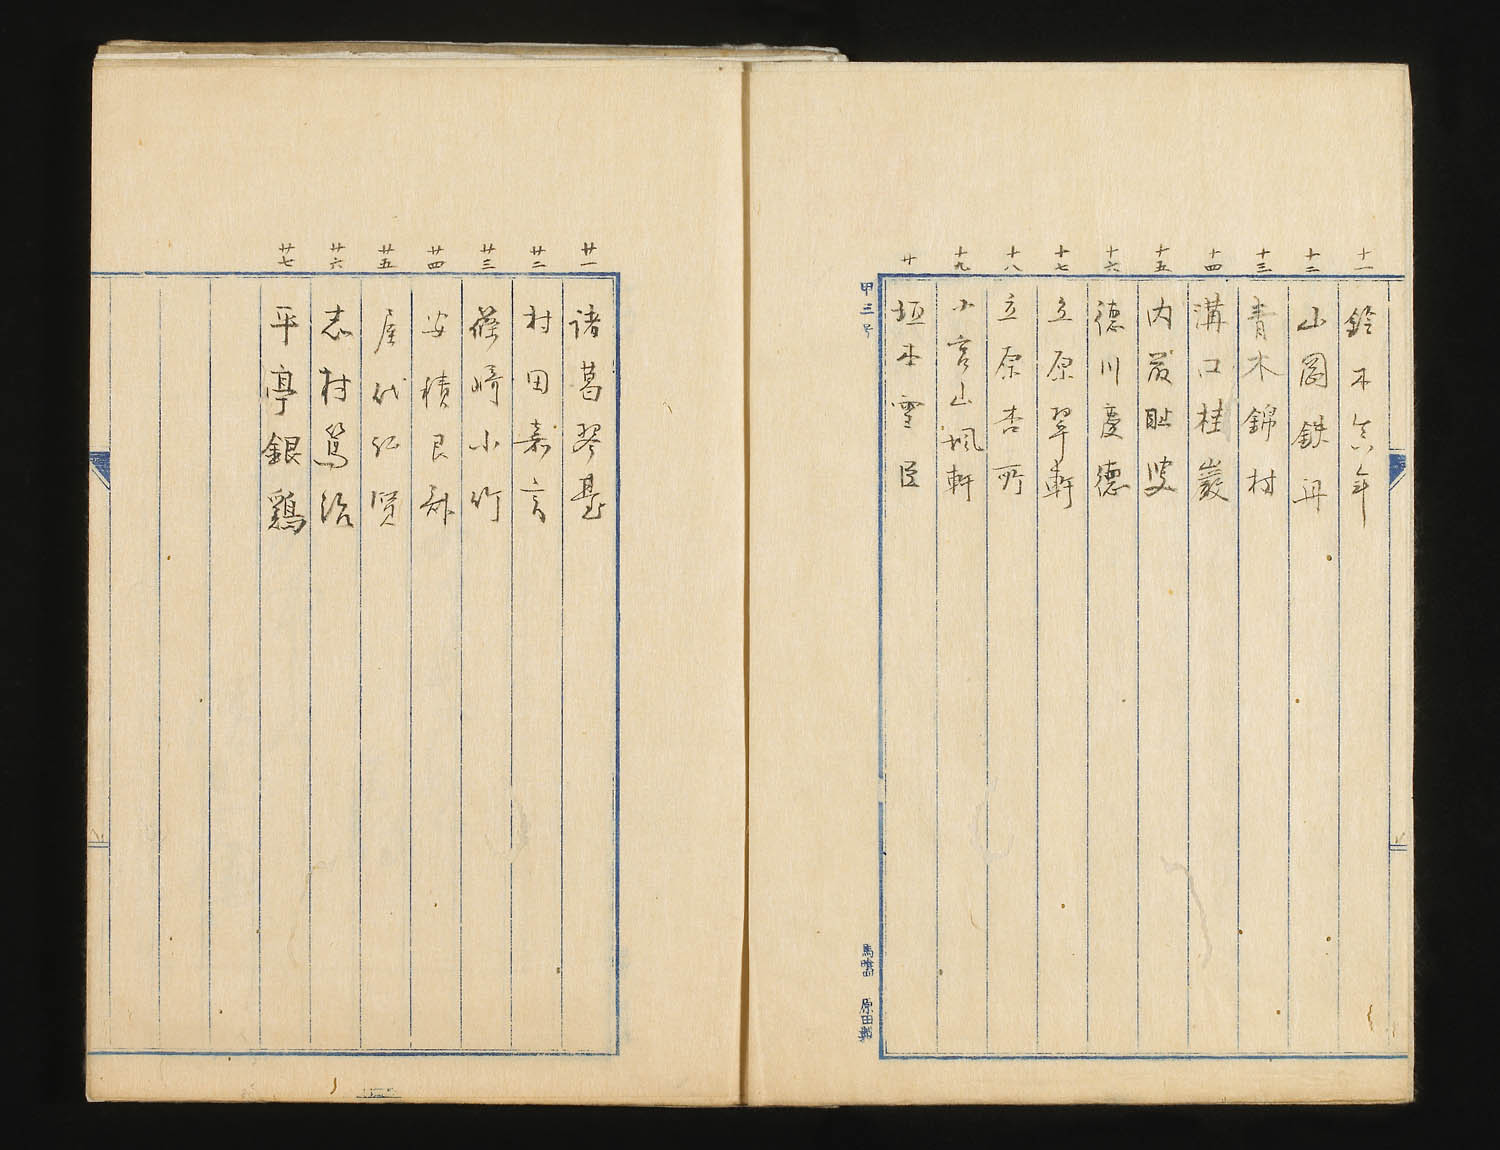 十一 鈴木 年
十二 山岡鉄舟
十三 青木錦村
十四 溝口桂巌
十五 内藤耻叟
十六 徳川慶徳
十七 立原翠軒
十八 立原杏所
十九 小宮山楓軒
廿 垣本雪臣
甲三号
原田製
廿一 諸葛琴台
廿二 村田嘉言
廿三 篠崎小竹
廿四 安積艮斎
廿五 屋代弘賢
廿六 志村篤治
廿七 平亭銀鶏